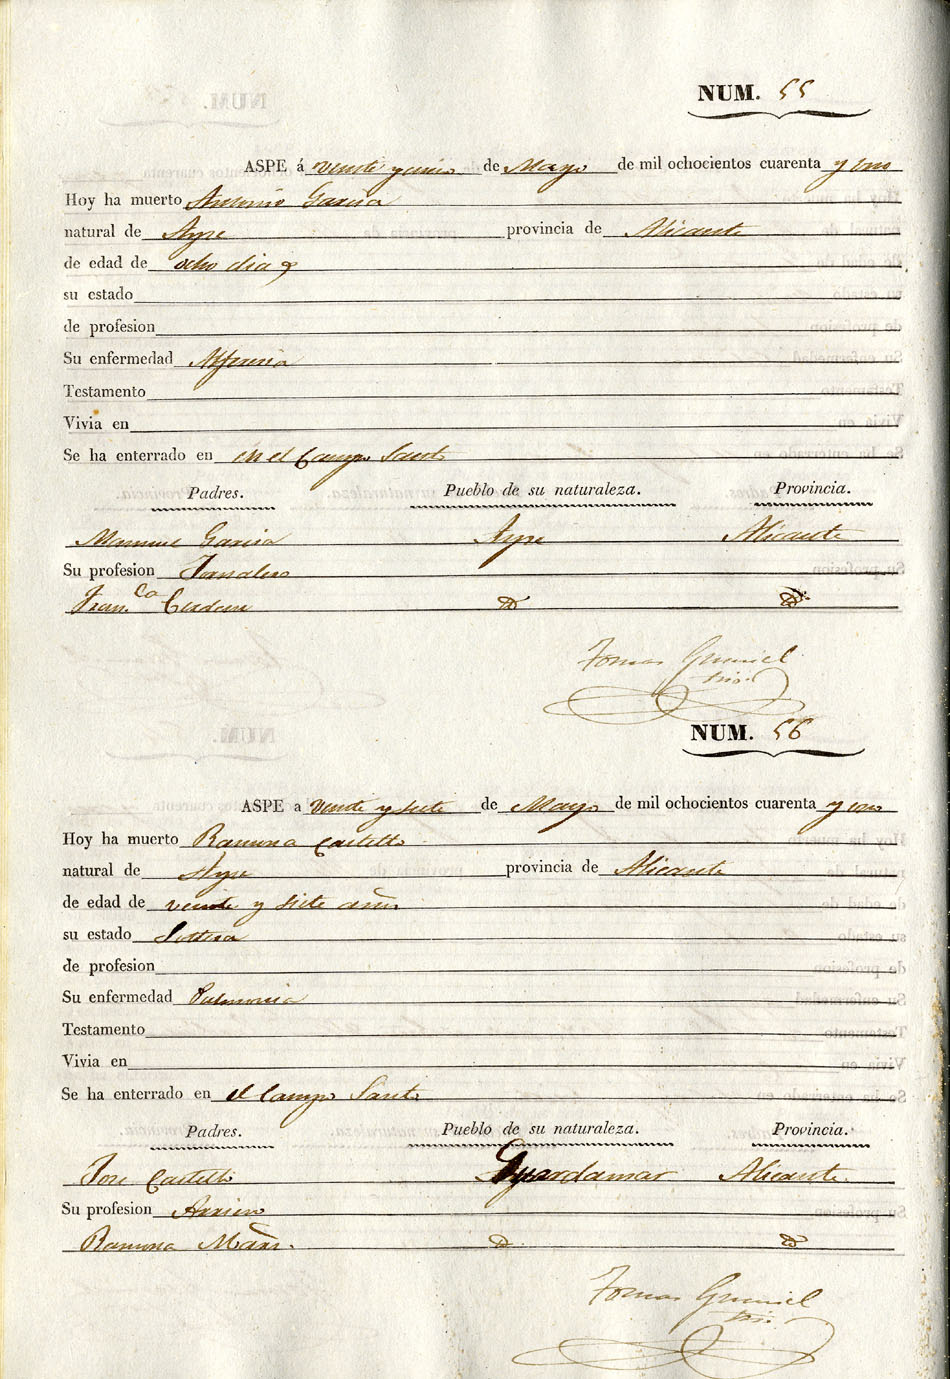 NUM. 55
ASPE á veinte y cinco de Mayo de mil ochocientos cuarenta y uno
Hoy ha muerto Antonio Garcia
natural de Aspe provincia de Alicante
de edad de ocho dias
su estado
de profesion
Su enfermedad Alferecia
Testamento
Vivia en
Se ha enterrado en en el Campo Santo
Padres. Pueblo de su naturaleza. Provincia.
Manuel Garcia Aspe Alicante
Su profesion Jornalero
Fran.ca Cerdan D D
Tomas
NUM. 56
ASPE a veinte y siete de Mayo de mil ochocientos cuarenta y uno
Hoy ha muerto Ramona Castello
natural de Aspe provincia de Alicante
de edad de veinte y siete años
su estado Soltera
de profesion
Su enfermedad Pulmonia
Testamento
Vivia en
Se ha enterrado en el Campo Santo
Padres. Pueblo de su naturaleza. Provincia.
Jose Castello Guardamar Alicante.
Su profesion Arriero
Ramona D D
Tomas